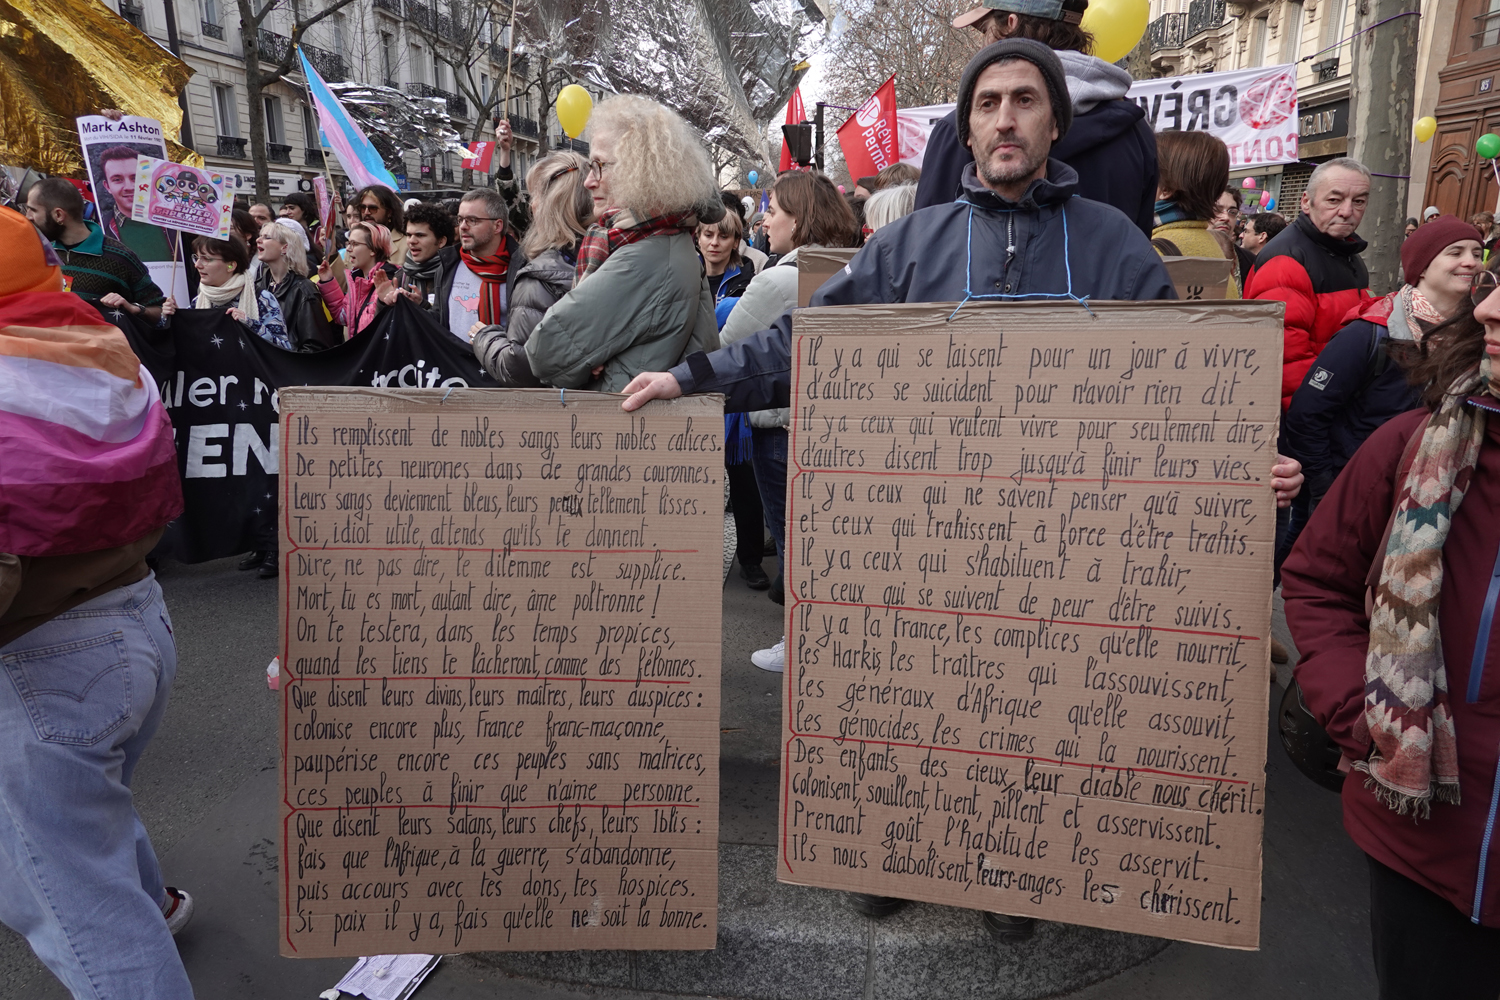 Mark Ashton
GRÈVE
CONT
GAN
85
Rêve
Perma
uler
EN
Ils remplissent de nobles sangs leurs nobles calices.
De petites neurones dans de grandes couronnes.
Leurs sangs deviennent bleus, leurs peaux tellement lisses.
Toi, idiot utile, attends qu'ils te donnent.
Dire, ne pas dire, le dilemme est supplice.
Mort, tu es mort, autant dire, âme poltronne !
On te testera, dans les temps propices,
quand les tiens te lâcheront, comme des félonnes.
Que disent leurs divins, leurs maîtres, leurs auspices :
colonise encore plus, France franc-maçonne,
paupérise encore ces peuples sans matrices,
ces peuples à finir que n'aime personne.
Que disent leurs Satans, leurs chefs, leurs Iblis :
fais que l'Afrique, à la guerre, s'abandonne,
puis accours avec tes dons, tes hospices.
Si paix il y a, fais qu'elle ne soit la bonne.
Il y a qui se taisent pour un jour à vivre,
d'autres se suicident pour n'avoir rien dit.
Il y a ceux qui veulent vivre pour seulement dire,
d'autres disent trop jusqu'à finir leurs vies.
Il y a ceux qui ne savent penser qu'à suivre,
et ceux qui trahissent à force d'être trahis.
Il y a ceux qui s'habituent à trahir,
et ceux qui se suivent de peur d'être suivis.
Il y a la France, les complices qu'elle nourrit,
les Harkis, les traîtres qui l'assouvissent,
les généraux d'Afrique qu'elle assouvit,
les génocides, les crimes qui la nourissent.
Des enfants des cieux, leur diable nous chérit.
Colonisent, souillent, tuent, pillent et asservissent.
Prenant goût, l'habitude les asservit.
Ils nous diabolisent, leurs anges les chérissent.